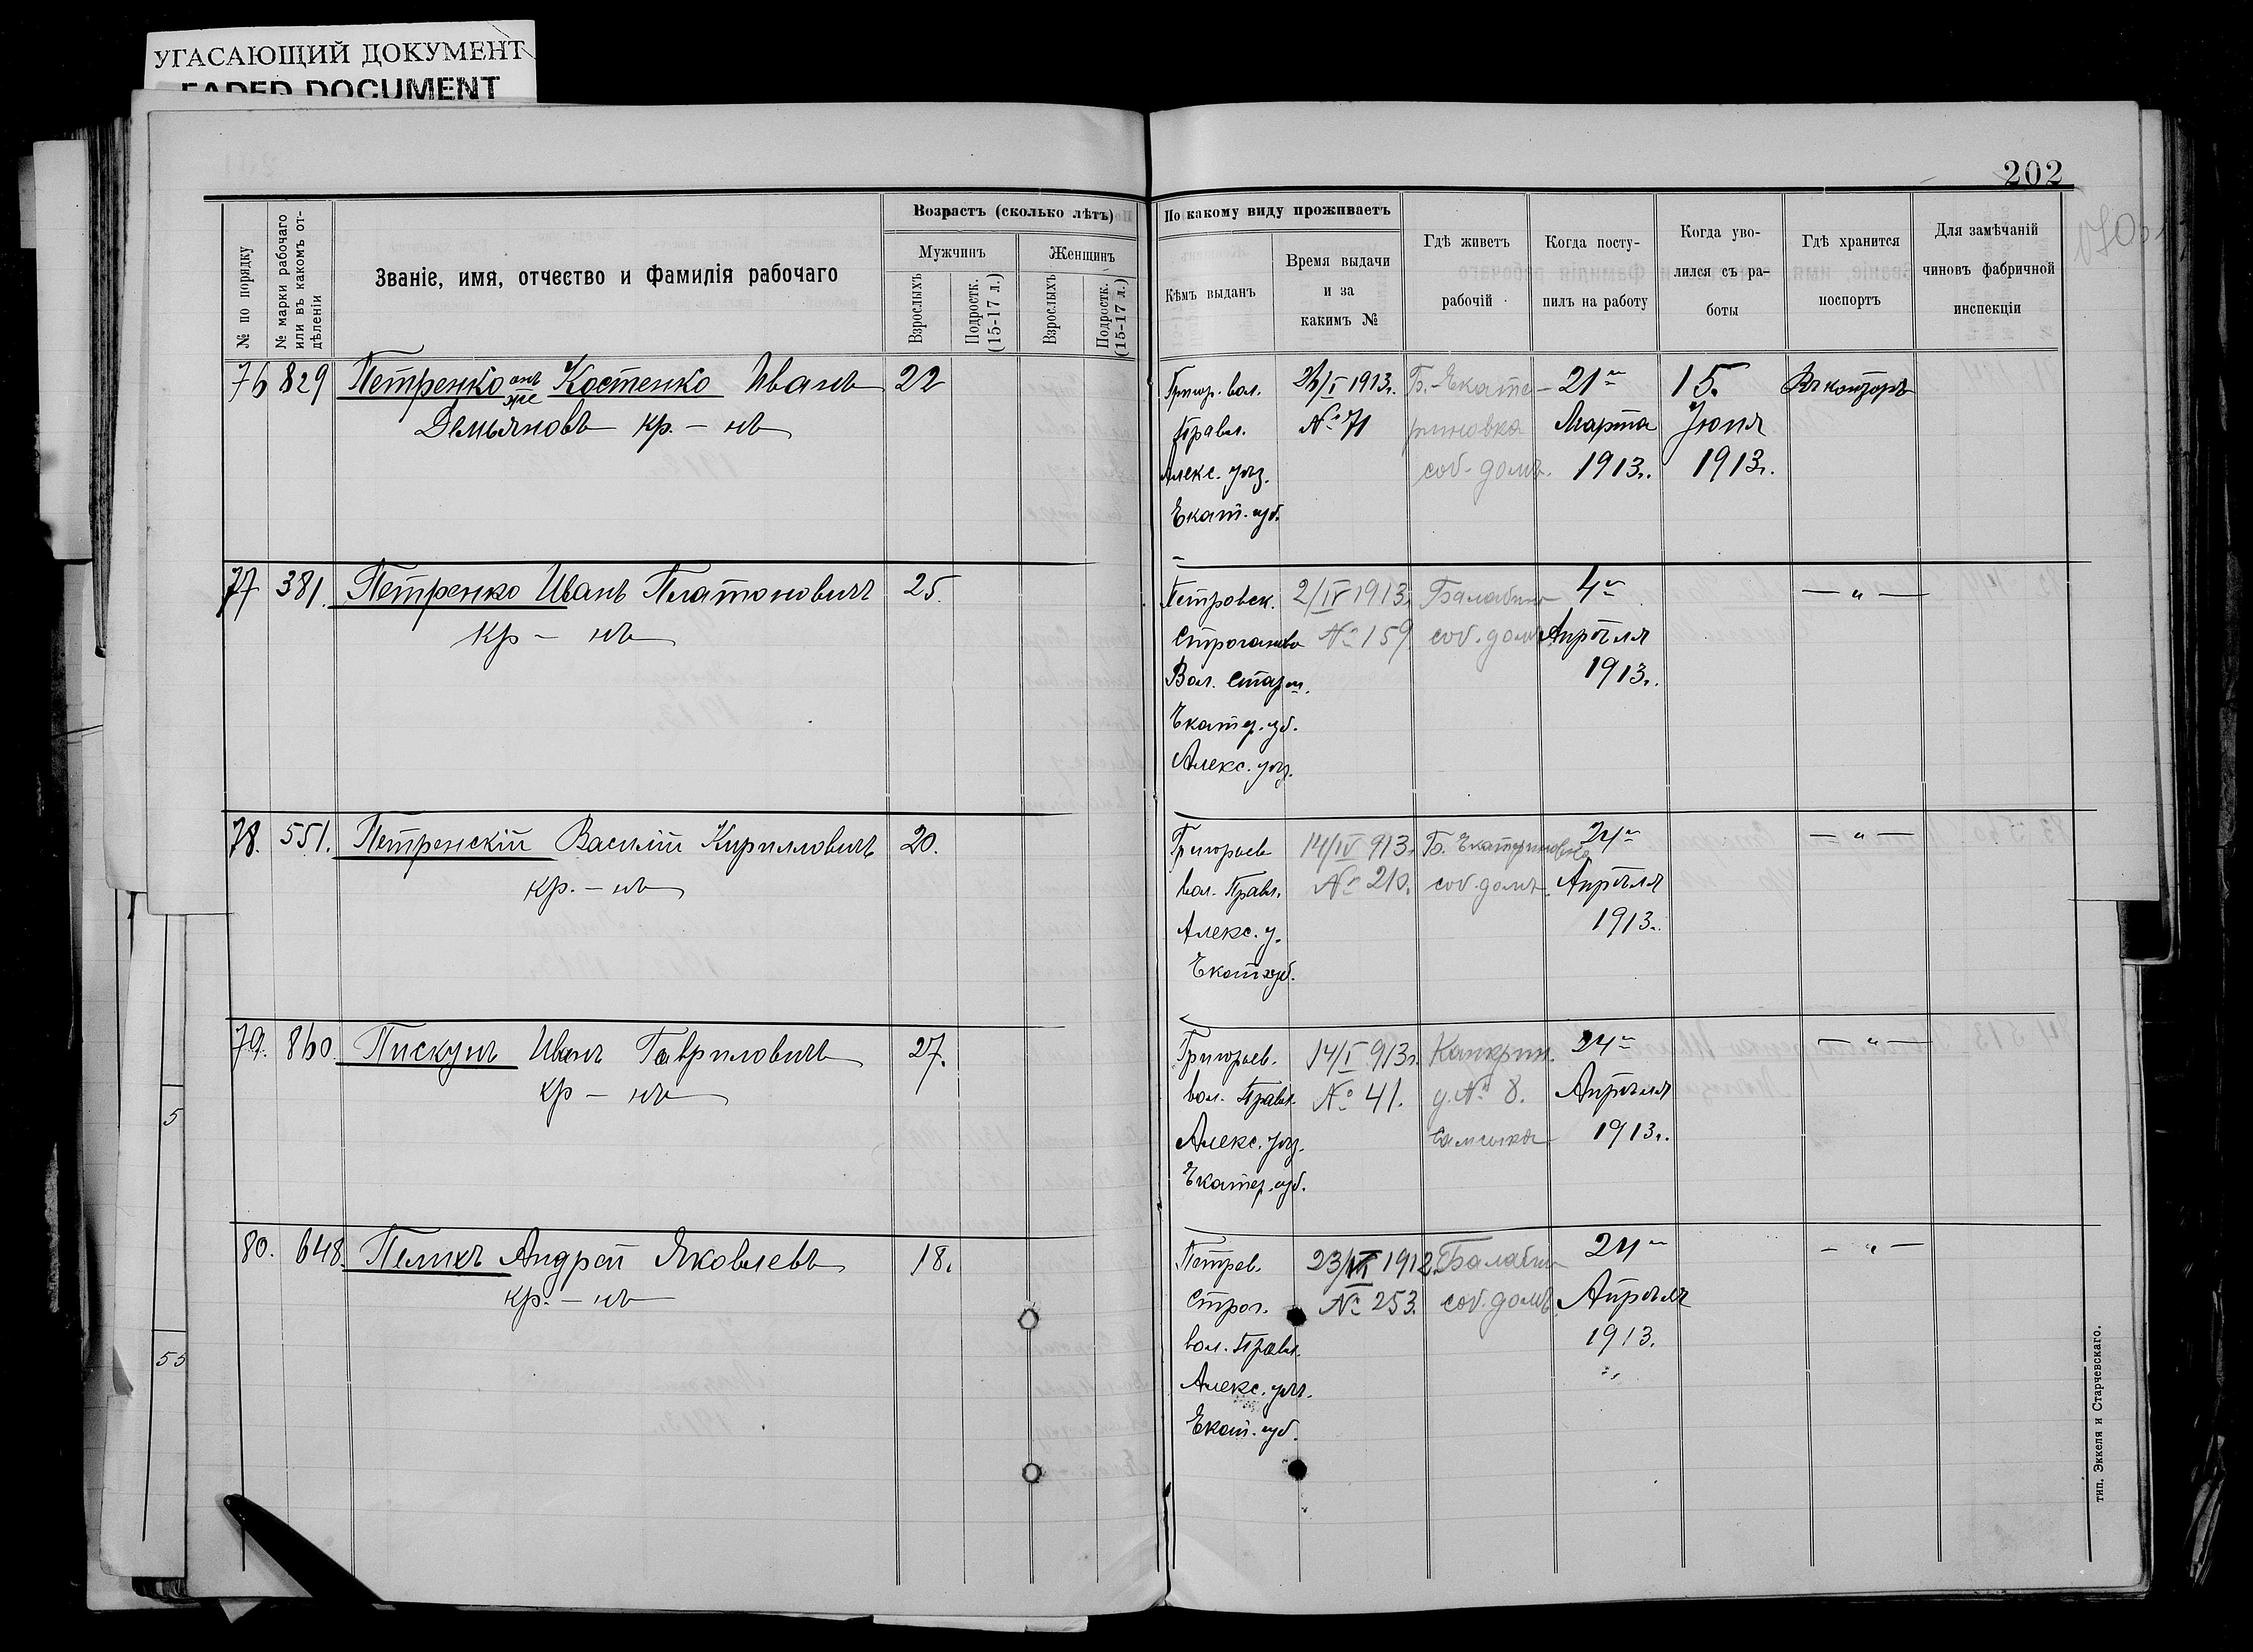 УГАСАЮЩИЙ ДОКУМЕНТ
FADED DOCUMENT
202
№ по порядку
№ марки рабочаго
или въ какомъ от-
дѣленіи
Званіе, имя, отчество и фамилія рабочаго
Возрастъ (сколько лѣтъ)
Мужчинъ
Женщинъ
Взрослыхъ
Подростк.
(15-17 л.)
Взрослыхъ
Подростк.
(15-17 л.)
По какому виду проживаетъ
Кѣмъ выданъ
Время выдачи
и за
какимъ №
Гдѣ живетъ
рабочій
Когда посту-
пилъ на работу
Когда уво-
лился съ ра-
боты
Гдѣ хранится
поспортъ
Для замѣчаній
чиновъ фабричной
инспекціи
76 829 Петренко онъ же Костенко Иванъ 22
Демьяновъ кр. - нъ
Григор. вол.
Правл.
Алекс. уѣз.
Екат. губ.
26/I 1913г.
№ 71
Б.-Екате-
риновка
соб. домъ.
21го
Марта
1913г.
15.
Іюня
1913г.
Въ конторѣ
77 381. Петренко Иванъ Платоновичъ 25.
кр - нъ
Петровск.
Строганово
Вол. Старш.
Екатер. губ.
Алекс. уѣз.
2/IV 1913г.
№ 159
Балабино
соб. домъ
4го
Апрѣля
1913г.
— " —
78. 551. Петренскій Василій Кирилловичъ 20.
кр. - нъ
Григорьев
вол. Правл.
Алекс. у.
Екат губ.
14/IV 913г.
№ 210.
Б. Екатериновка
соб. домъ
24го
Апрѣля
1913г.
— " —
79. 860. Пискунъ Иванъ Гавриловичъ 27.
кр - нъ
Григорьев.
вол. Правл.
Алекс. уѣз.
Екатер. губ.
14/I 913г.
№ 41.
Канкрин.
д. № 8.
24го
Апрѣля
1913г.
— " —
80. 648. Пелихъ Андрей Яковлевъ 18.
кр. - нъ
Петров.
Строг.
вол. Правл.
Алекс. уѣз.
Екат. губ.
1912
№ 253.
Балабин
соб. домъ
24го
Апрѣля
1913.
— " —
5
55
тип. Эккеля и Старчевскаго.